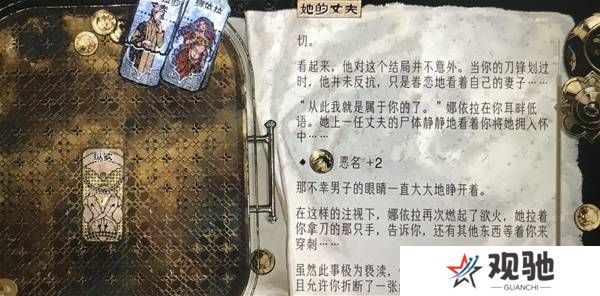 她的丈夫
娜依拉
纵欲
切。
看起来，他对这个结局并不意外。当你的刀锋划过
时，他并未反抗，只是眷恋地看着自己的妻子……
“从此我就是属于你的了。”娜依拉在你耳畔低
语。她上一任丈夫的尸体静静地看着你将她拥入怀
中……
恶名 +2
那不幸男子的眼睛一直大大地睁开着。
在这样的注视下，娜依拉再次燃起了欲火，她拉着
你拿刀的那只手，告诉你，还有其他东西等着你来
穿刺……
虽然此事极为亵渎，
且允许你折断了一张
观驰
GUANCHI